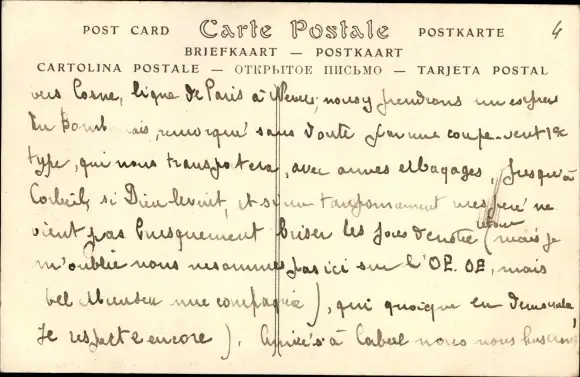 4
POST CARD Carte Postale POSTKARTE
BRIEFKAART — POSTKAART
CARTOLINA POSTALE — ОТКРЫТОЕ ПИСЬМО — TARJETA POSTAL
vers Cosne, ligne de Paris à Nevers; nous y prendrons un express
du Bourbonnais, remorqué sans doute par une coupe-vent 1re
type, qui nous transportera, avec armes et bagages, jusqu'à
Corbeil, si Dieu le veut, et si un tamponnement ne
vient pas brusquement briser les joies de notre retour (mais je
m'oublie nous ne sommes pas ici sur l'OE. OE, mais
bel et bien sur une compagnie), qui quoique en
je respecte encore). Arrivés à Corbeil nous nous